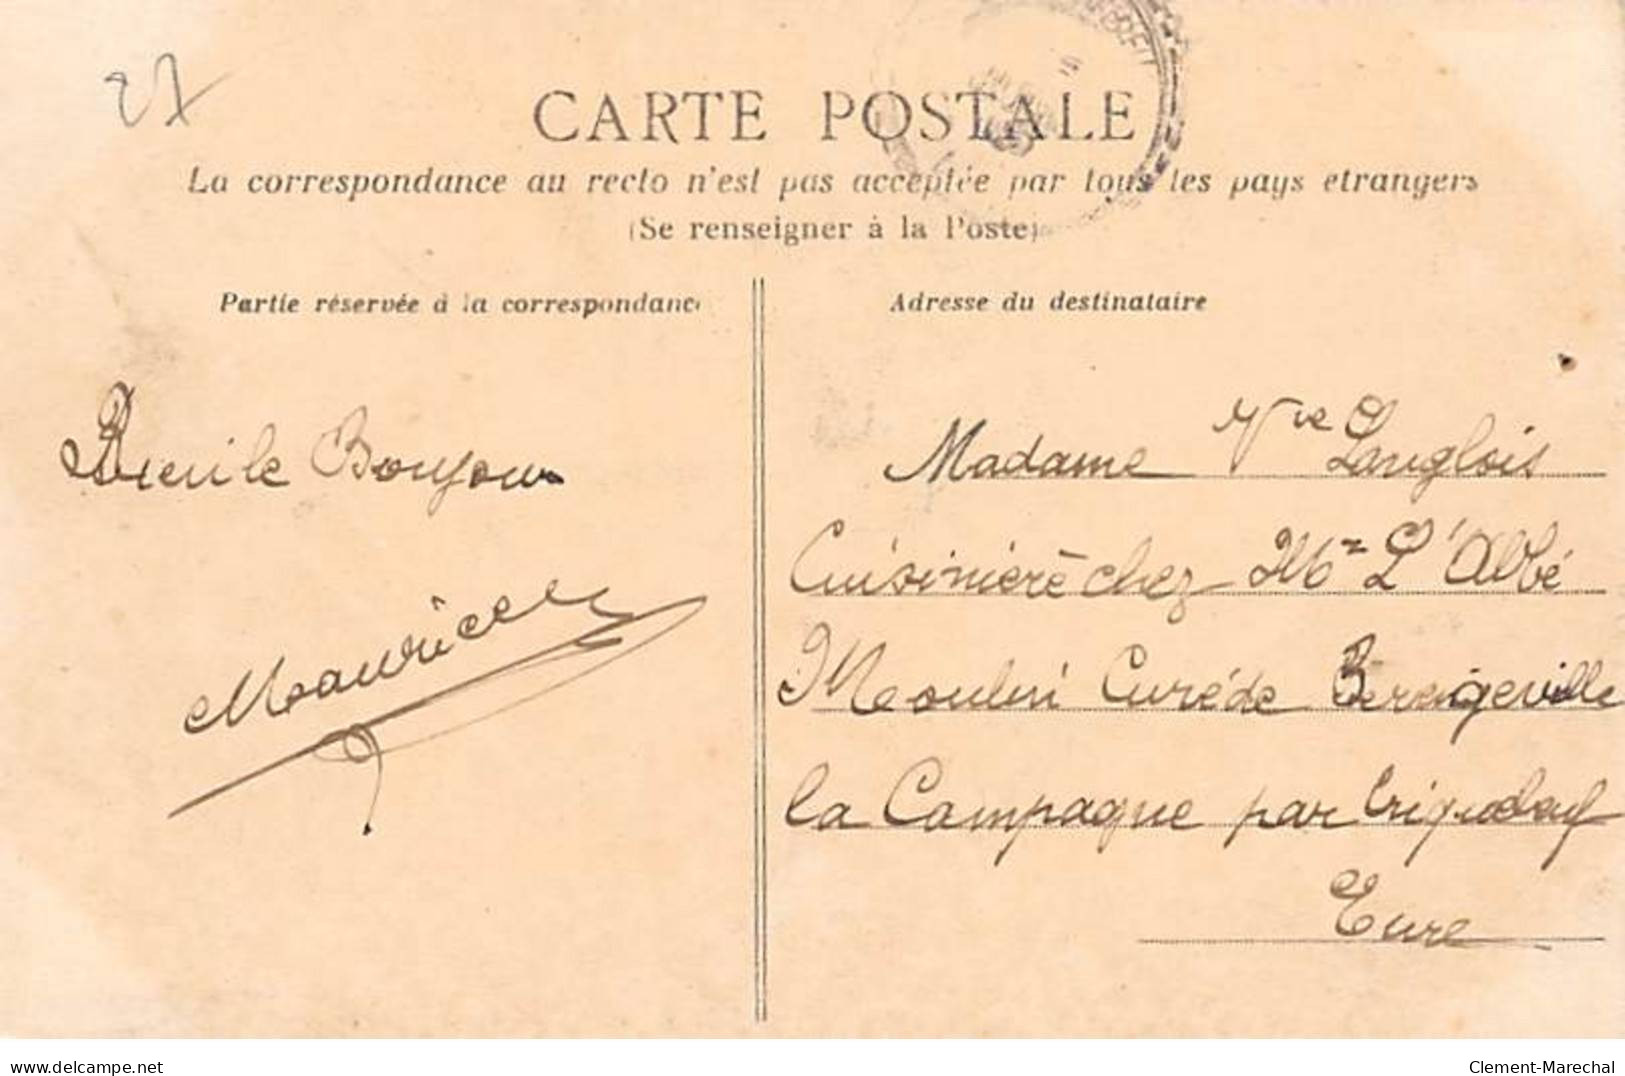 27
CARTE POSTALE
La correspondance au recto n'est pas acceptée par tous les pays etrangers
(Se renseigner à la Poste)
Partie réservée à la correspondance
Adresse du destinataire
Bonjour
Maurice
Madame Vve Langlois
Cuisinière chez Mr L'Abbé
Moulin Curé de Berengeville
la Campagne par
Eure
delcampe.net
Clement-Marechal